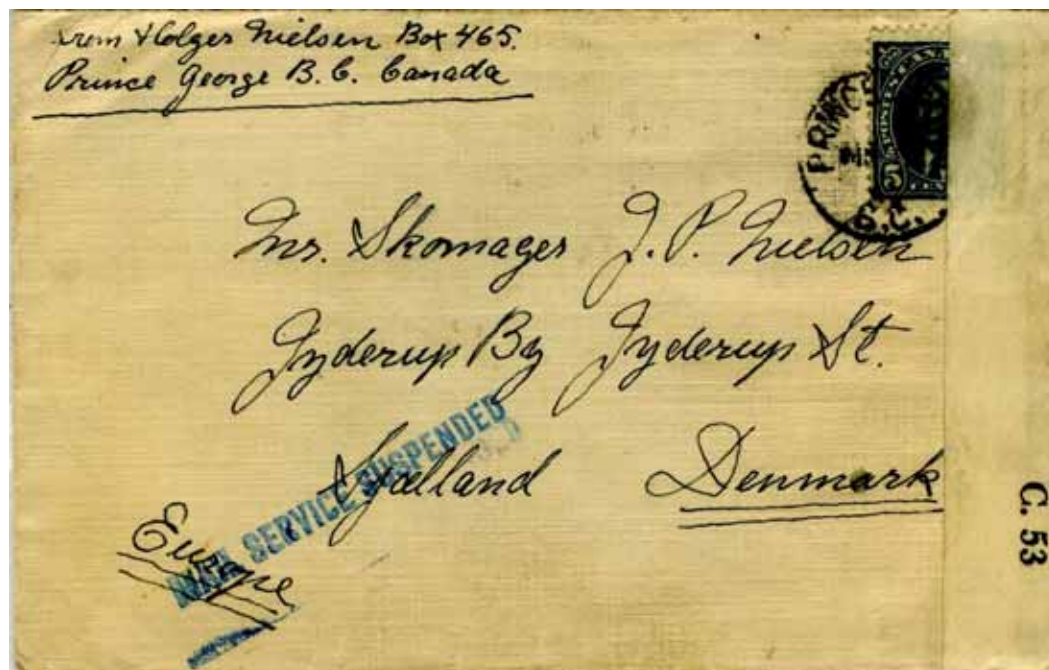 From Holger Nielsen Box 465.
Prince George B. C. Canada
PRINCE
B.C.
5
Mr. Skomager J. P. Nielsen
Jyderup By Jyderup St.
Sjælland Denmark
Europe
MAIL SERVICE SUSPENDED
C. 53